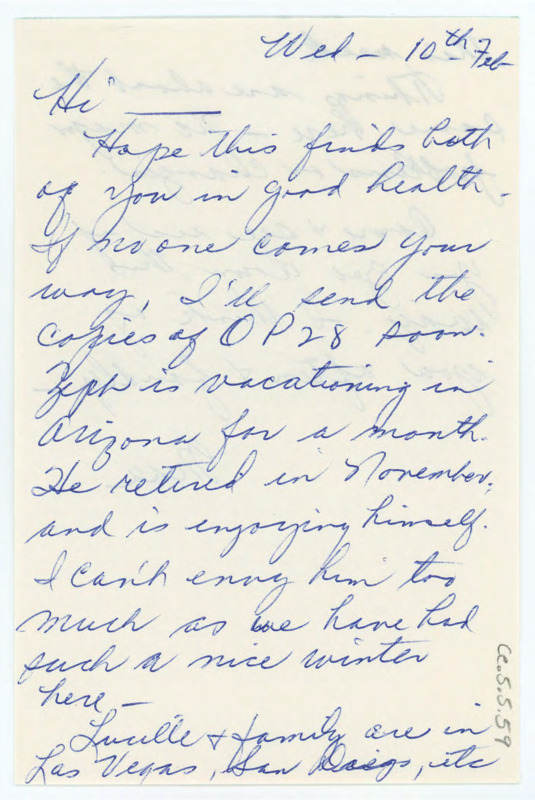 Wed - 10th Feb
Hi
Hope this finds both
of you in good health.
If no one comes your
way, I'll send the
copies of OP28 soon.
Zeph is vacationing in
Arizona for a month.
He retired in November,
and is enjoying himself.
I can't envy him too
much as we have had
such a nice winter
here -
Lucille & family are in
Las Vegas, San Diego, etc
Cc.5.5.59